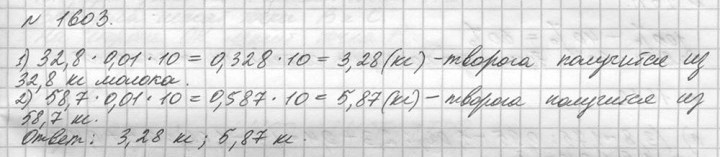 № 1603.
1) 32,8 · 0,01 · 10 = 0,328 · 10 = 3,28 (кг) - творога получится из
32,8 кг молока.
2) 58,7 · 0,01 · 10 = 0,587 · 10 = 5,87 (кг) - творога получится из
58,7 кг.
Ответ: 3,28 кг; 5,87 кг.